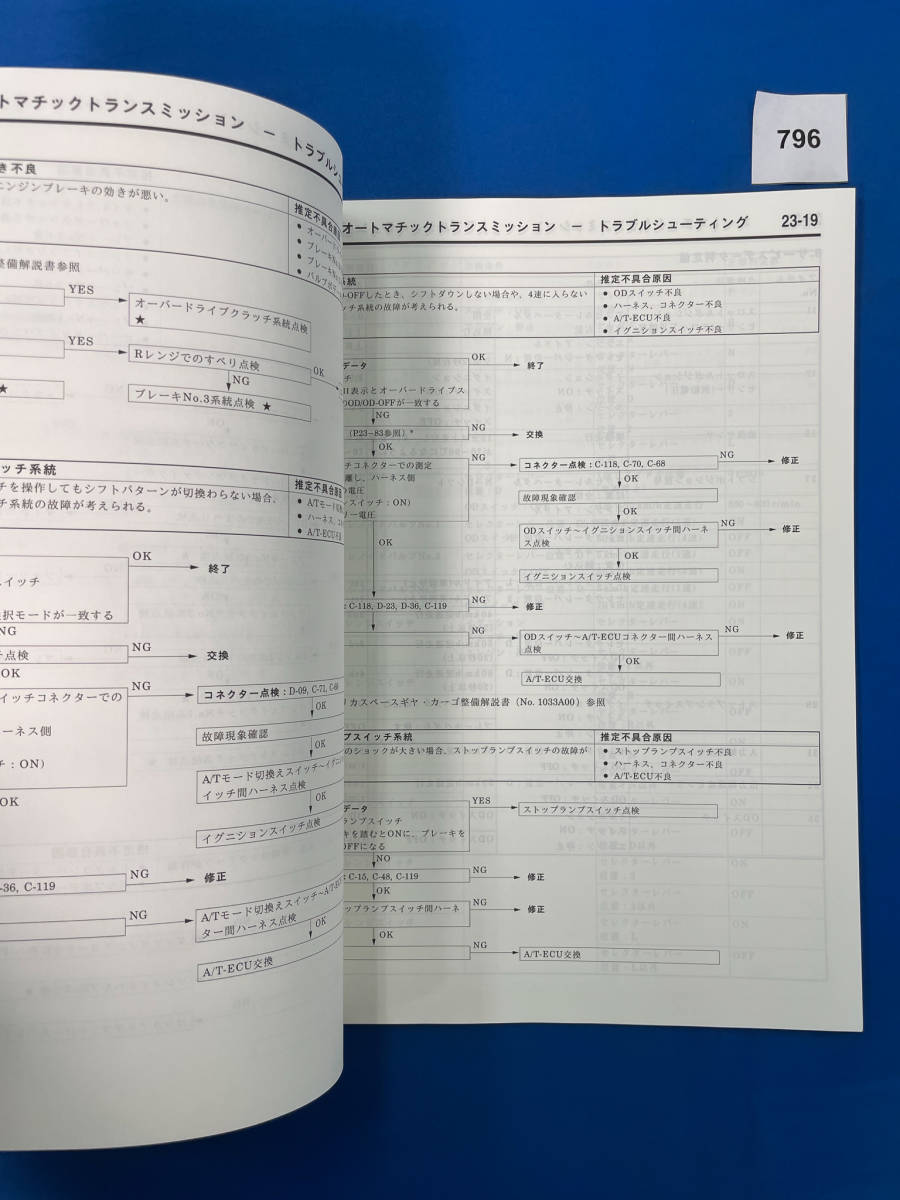 796
トマチックトランスミッション － トラブルシュ
き不良
ニンジンブレーキの効きが悪い。
推定不具合原因
整備解説書参照
YES
オーバードライブクラッチ系統点検
★
YES
Rレンジでのすべり点検
OK
NG
ブレーキNo.3系統点検 ★
★
ッチ系統
チを操作してもシフトパターンが切換わらない場合、
チ系統の故障が考えられる。
推定不具合原因
● A/Tモード切換
● ハーネス、コネ
● A/T-ECU不良
OK
終了
スイッチ
選択モードが一致する
NG
チ点検
NG
交換
OK
イッチコネクターでの
ーネス側
チ：ON）
NG
コネクター点検：D-09, C-71, C-68
OK
故障現象確認
OK
A/Tモード切換えスイッチ～イグニ
イッチ間ハーネス点検
OK
イグニションスイッチ点検
OK
-36, C-119
NG
修正
NG
A/Tモード切換えスイッチ～A/T-EC
ター間ハーネス点検
OK
A/T-ECU交換
オートマチックトランスミッション － トラブルシューティング 23-19
系統
D-OFFしたとき、シフトダウンしない場合や、4速に入らない
ッチ系統の故障が考えられる。
推定不具合原因
● ODスイッチ不良
● ハーネス、コネクター不良
● A/T-ECU不良
● イグニションスイッチ不良
データ
チ
II表示とオーバードライブス
OOD/OD-OFFが一致する
OK
終了
NG
（P.23-83参照）*
NG
交換
OK
チコネクターでの測定
離し、ハーネス側
の電圧
スイッチ：ON）
リー電圧
NG
コネクター点検：C-118, C-70, C-68
NG
修正
OK
故障現象確認
OK
ODスイッチ～イグニションスイッチ間ハーネ
ス点検
NG
修正
OK
イグニションスイッチ点検
OK
: C-118, D-23, D-36, C-119
NG
修正
NG
ODスイッチ～A/T-ECUコネクター間ハーネス
点検
NG
修正
OK
A/T-ECU交換
リカスペースギヤ・カーゴ整備解説書（No. 1033A00）参照
プスイッチ系統
のショックが大きい場合、ストップランプスイッチの故障が
推定不具合原因
● ストップランプスイッチ不良
● ハーネス、コネクター不良
● A/T-ECU不良
データ
ランプスイッチ
キを踏むとONに、ブレーキを
OFFになる
YES
ストップランプスイッチ点検
NO
: C-15, C-48, C-119
NG
修正
OK
ップランプスイッチ間ハーネ
NG
修正
OK
NG
A/T-ECU交換